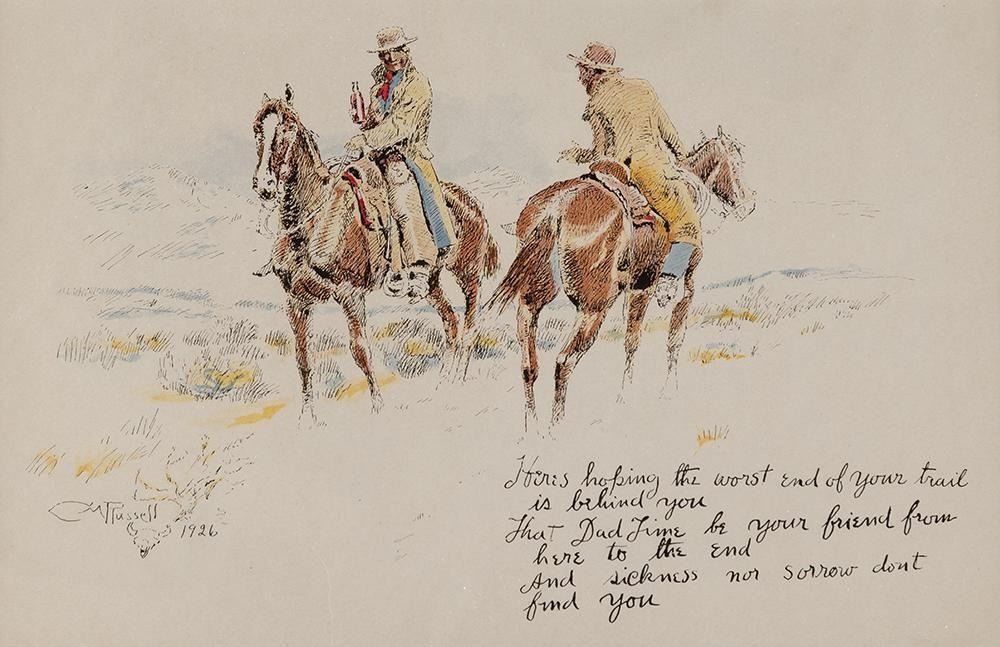 Heres hoping the worst end of your trail
is behind you
That Dad Time be your friend from
here to the end
And sickness nor sorrow dont
find you
CM Russell
1926